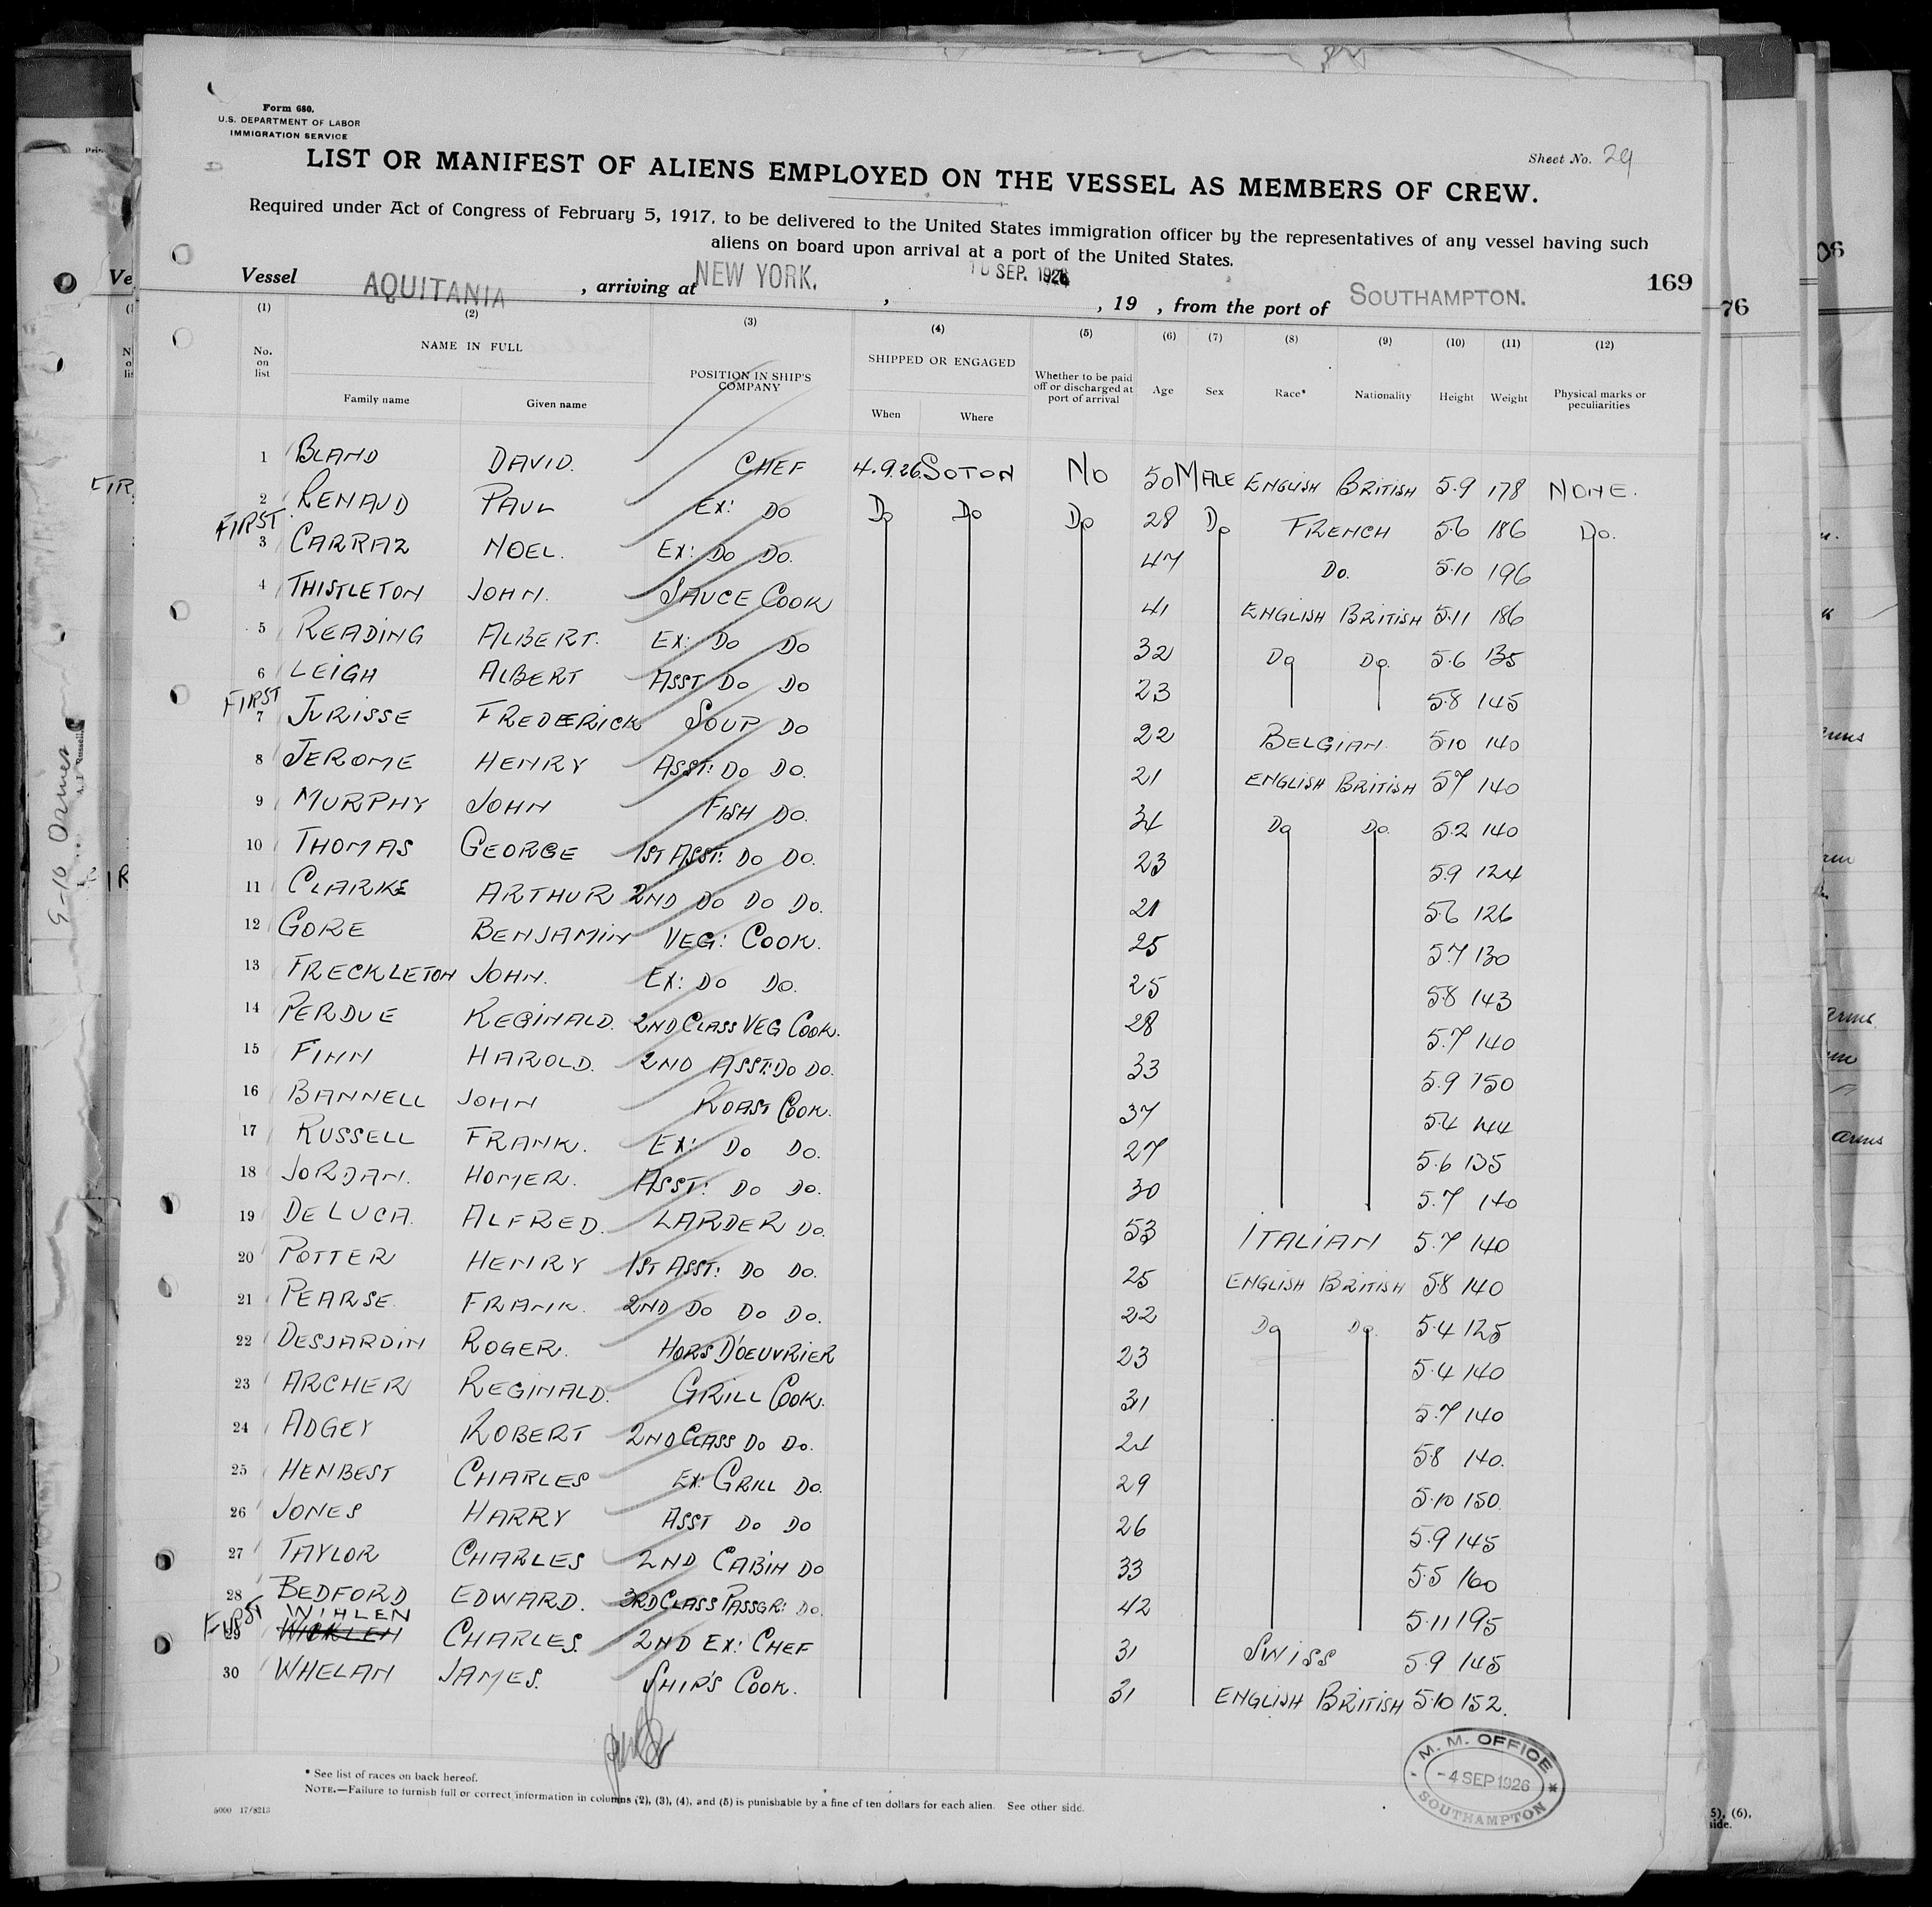 Form 680.
U.S. DEPARTMENT OF LABOR
IMMIGRATION SERVICE
Sheet No. 29
LIST OR MANIFEST OF ALIENS EMPLOYED ON THE VESSEL AS MEMBERS OF CREW.
Required under Act of Congress of February 5, 1917, to be delivered to the United States immigration officer by the representatives of any vessel having such
aliens on board upon arrival at a port of the United States.
169
Vessel AQUITANIA, arriving at NEW YORK, SEP. 1926, 19 , from the port of SOUTHAMPTON.
(1) (2) (3) (4) (5) (6) (7) (8) (9) (10) (11) (12)
No. on list NAME IN FULL Family name Given name POSITION IN SHIP'S COMPANY SHIPPED OR ENGAGED When Where Whether to be paid off or discharged at port of arrival Age Sex Race* Nationality Height Weight Physical marks or peculiarities
1 BLAND DAVID. CHEF 4.9.26 SOTON NO 50 MALE ENGLISH BRITISH 5.9 178 NONE.
2 RENAUD PAUL EX: DO DO DO DO 28 DO FRENCH 5.6 186 DO.
FIRST 3 CARRAZ NOEL. EX: DO DO. 47 DO. 5.10 196
4 THISTLETON JOHN. SAUCE COOK 41 ENGLISH BRITISH 5.11 186
5 READING ALBERT. EX: DO DO 32 DO DO. 5.6 135
6 LEIGH ALBERT ASST DO DO 23 5.8 145
FIRST 7 JURISSE FREDERICK SOUP DO 22 BELGIAN 5.10 140
8 JEROME HENRY ASST: DO DO. 21 ENGLISH BRITISH 5.7 140
9 MURPHY JOHN FISH DO. 34 DO DO. 5.2 140
10 THOMAS GEORGE 1ST ASST: DO DO. 23 5.9 124
11 CLARKE ARTHUR 2ND DO DO DO. 21 5.6 126
12 GORE BENJAMIN VEG: COOK. 25 5.7 130
13 FRECKLETON JOHN. EX: DO DO. 25 5.8 143
14 PERDUE REGINALD. 2ND CLASS VEG COOK. 28 5.7 140
15 FINN HAROLD. 2ND ASST: DO DO. 33 5.9 150
16 BANNELL JOHN ROAST COOK. 37 5.4 144
17 RUSSELL FRANK. EX: DO DO. 27 5.6 135
18 JORDAN. HOMER. ASST: DO DO. 30 5.7 140
19 DE LUCA. ALFRED. LARDER DO. 53 ITALIAN 5.7 140
20 POTTER HENRY 1ST ASST: DO DO. 25 ENGLISH BRITISH 5.8 140
21 PEARSE. FRANK. 2ND DO DO DO. 22 DO DO. 5.4 125
22 DESJARDIN ROGER. HORS D'OEUVRIER 23 5.4 140
23 ARCHER REGINALD. GRILL COOK. 31 5.7 140
24 ADGEY ROBERT 2ND CLASS DO DO. 24 5.8 140.
25 HENBEST CHARLES EX: GRILL DO. 29 5.10 150.
26 JONES HARRY ASST DO DO 26 5.9 145
27 TAYLOR CHARLES 2ND CABIN DO 33 5.5 160
28 BEDFORD EDWARD. 3RD CLASS PASSGR: DO. 42 5.11 195
WIHLEN
FIRST 29 CHARLES. 2ND EX: CHEF 31 SWISS 5.9 145
30 WHELAN JAMES. SHIP'S COOK. 31 ENGLISH BRITISH 5.10 152.
* See list of races on back hereof.
NOTE.—Failure to furnish full or correct information in columns (2), (3), (4), and (5) is punishable by a fine of ten dollars for each alien. See other side.
5000 17/8213
M. M. OFFICE
-4 SEP 1926
SOUTHAMPTON
76